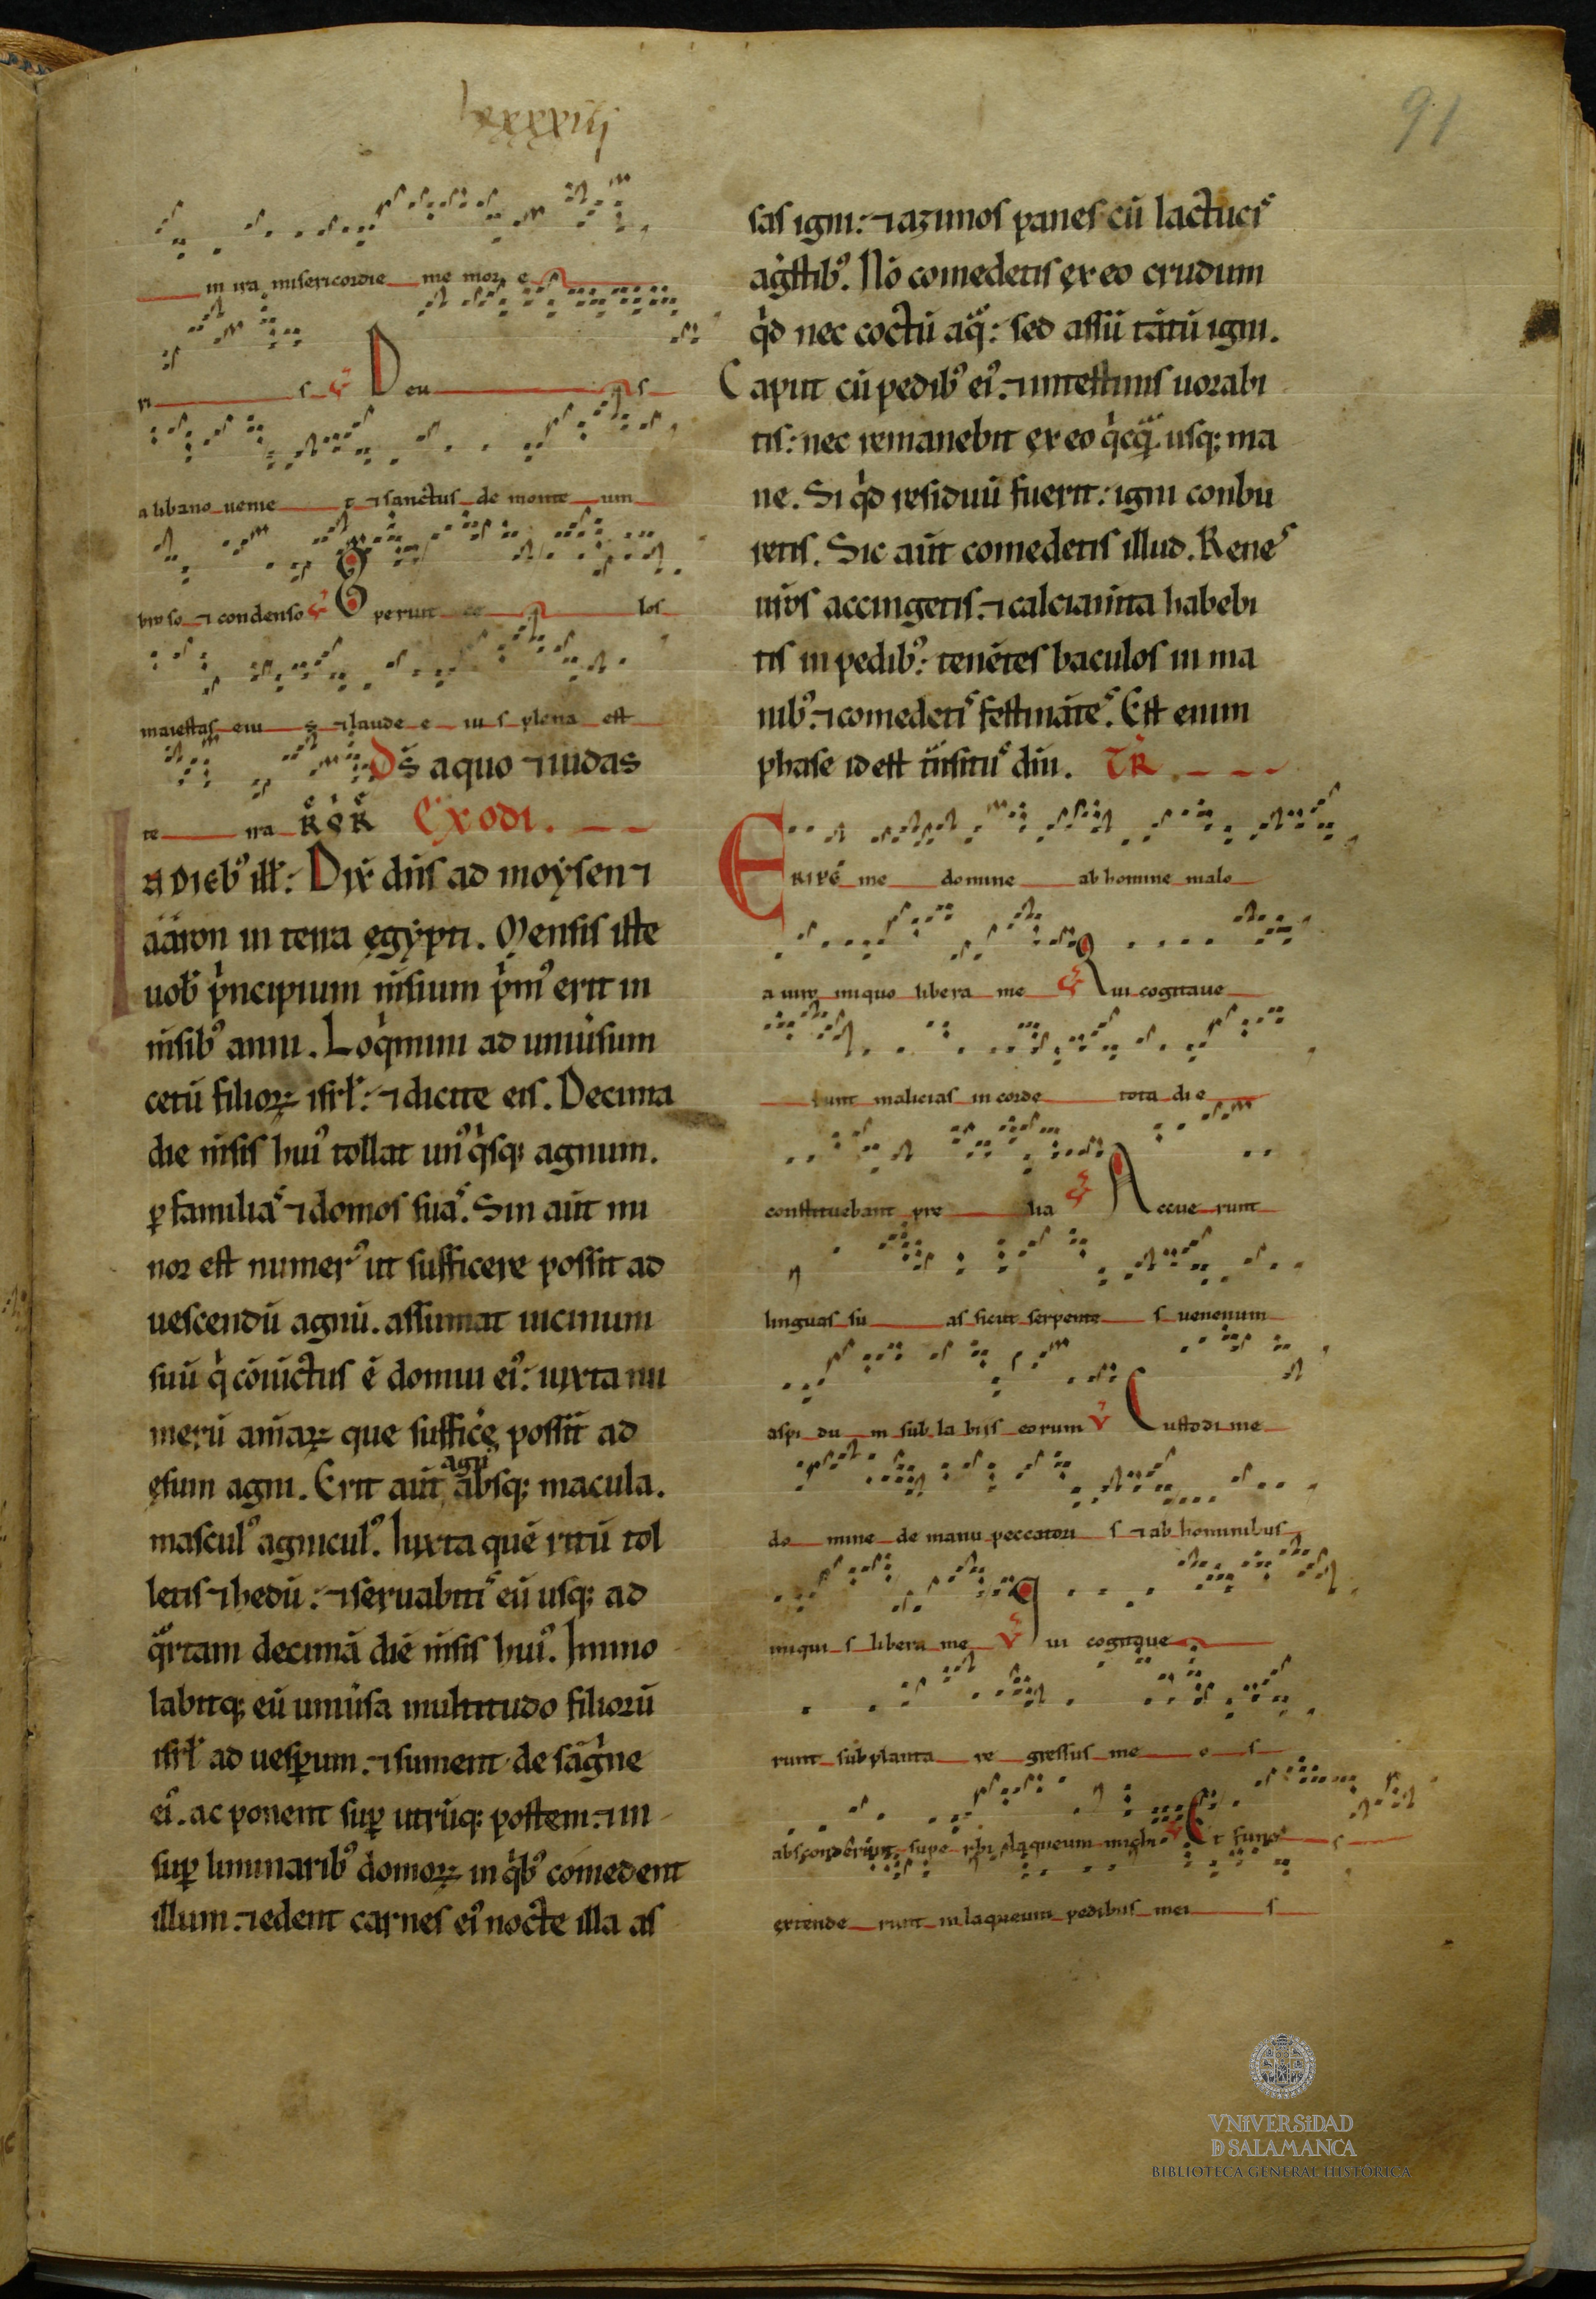 lxxxxiiij
91
in ira misericordie me mor e
ri s v̄ Deu s
a libano venie t ⁊ sanctus de monte um
broso ⁊ condenso v̄ Operuit ce los
maiestas eiu s ⁊ laude e iu s plena est
te rra Ds̄ a quo ⁊ iudas
Exodi.
In dieb᾽ ill̄: Dix̄ dn̄s ad moẏsen ⁊
aaron in terra egẏpti. Mensis iste
uob̄ pͥncipium m̄sium pͥm᾽ erit in
m̄sib᾽ anni. Loqͥmini ad uniu̾sum
cetū filioꝝ isrl̄: ⁊ dicite eis. Decima
die m̄sis hui᾽ tollat un᾽ qͥsq; agnum.
ꝑ familiaˢ ⁊ domos suaˢ. Sin aūt mi
nor est numer᾽ ut sufficere possit ad
uescendū agnū. assumat uicinum
suū qͥ cōiūctus ē domui ei᾽: iuxta nu
merū aīaꝝ que suffice̾ possīt ad
esum agni. Erit aūt agn᾽ absq; macula.
mascul᾽ agnicul᾽. Iuxta quē ritū tol
letis ⁊ hedū: ⁊ seruabitiˢ eū usq; ad
qͣrtam decimā diē m̄sis hui᾽. Immo
labitq; eū uniu̾sa multitudo filiorū
isrl̄ ad uesꝑum. ⁊ sument de sāgͥne
ei᾽. ac ponent suꝑ utrūq; postem. ⁊ in
suꝑ liminarib᾽ domoꝝ in qͥb᾽ comedent
illum. ⁊ edent carnes ei᾽ nocte illa as
sas igni: ⁊ azimos panes cū lactuciˢ
agͤstib᾽. Nō comedetis ex eo crudum
qͥd nec coctū aqͣ: sed assū tātū igni.
Caput cū pedib᾽ ei᾽. ⁊ intestinis uorabi
tis: nec remanebit ex eo qͥcqͣ usq; ma
ne. Si qͥd residuū fuerit: igni conbu
retis. Sic aūt comedetis illud. Reneˢ
ur̄os accingetis. ⁊ calciam̄ta habebi
tis in pedib᾽: tenētes baculos in ma
nib᾽. ⁊ comedetiˢ festināteˢ. Est enim
phase id est tͣnsituˢ dn̄i. TR̄
Eripe me domine ab homine malo
a viro iniquo libera me v̄ Qui cogitave
runt malicias in corde tota die
constituebant pre lia v̄ Accue runt
linguas su as sicut serpente s venenum
aspi du m sub la biis eorum v̄ Custodi me
do mine de manu peccatori s ⁊ ab hominibus
iniqui s libera me v̄ Qui cogitave
runt subplanta re gressus me o s
absconderunt supe rbi laqueum michi v̄ Et funeˢ s
extende runt in laqueum pedibus mei s
VNiVERSiDAD
D SALAMANCA
BIBLIOTECA GENERAL HISTÓRICA